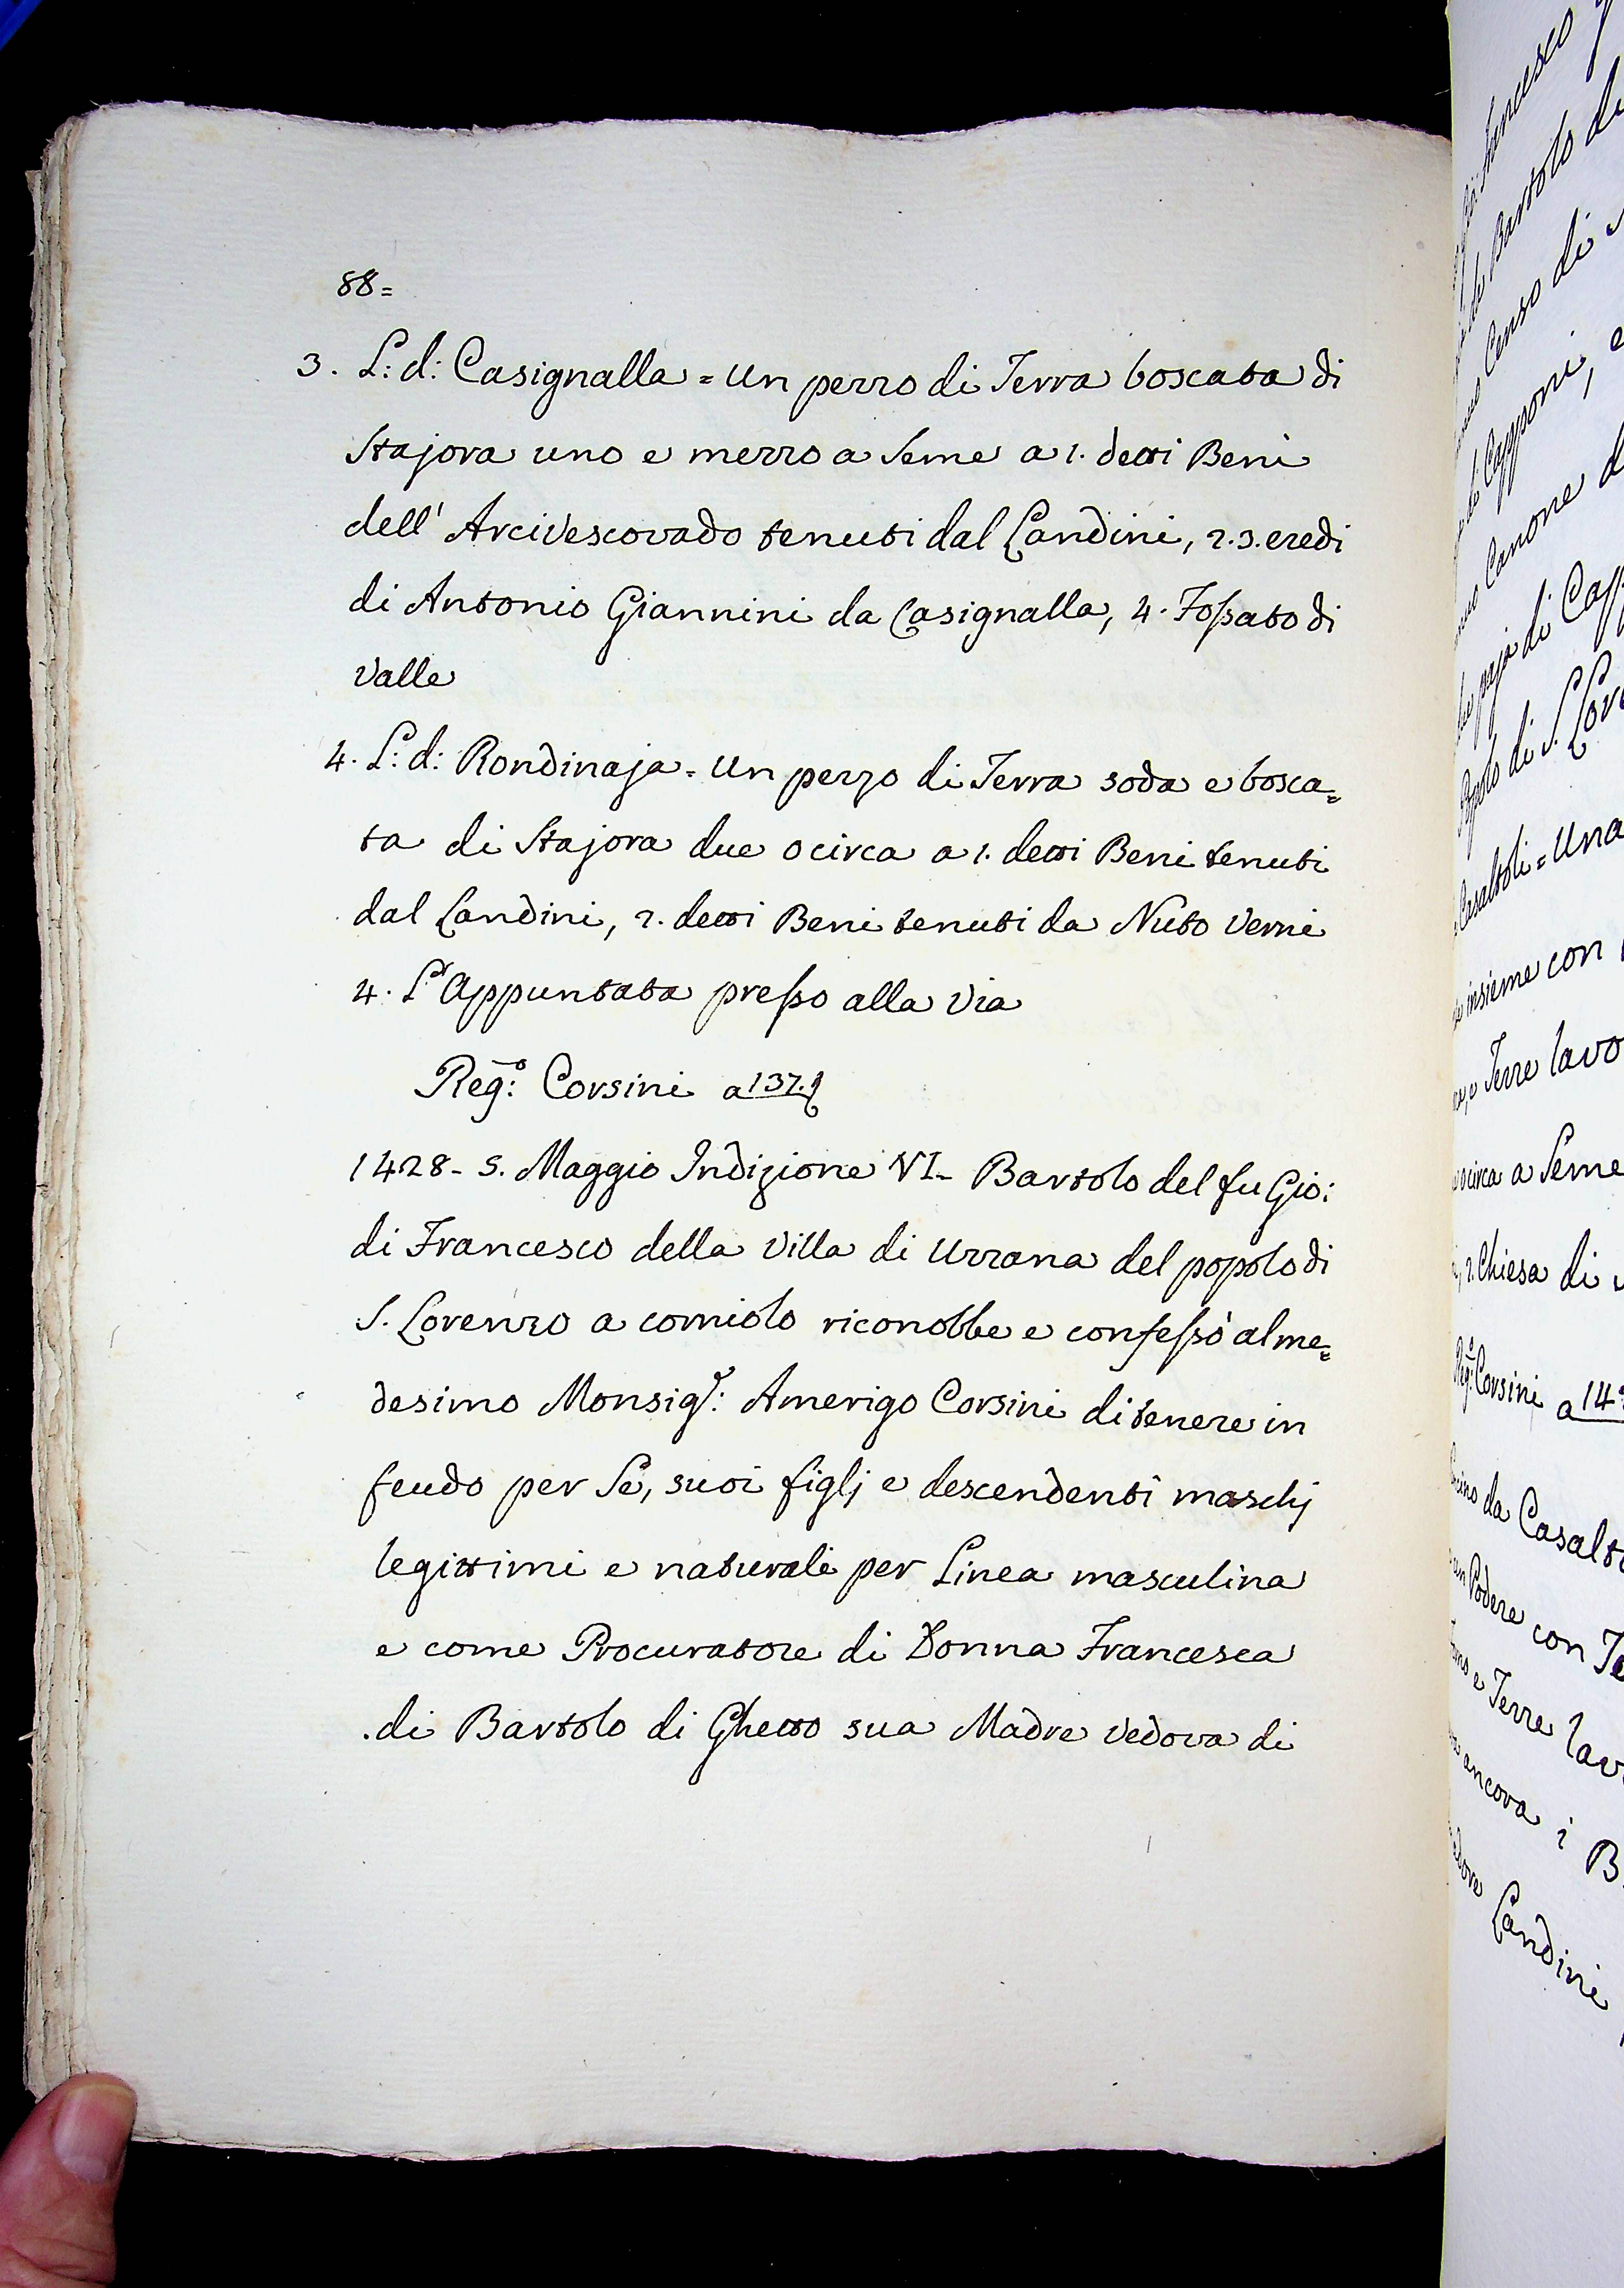 88=
3. L: d: Casignalla = Un pezzo di Terra boscata di
Stajora uno e mezzo a Seme a 1. detti Beni
dell' Arcivescovado tenuti dal Landini, 2. 3. eredi
di Antonio Giannini da Casignalla, 4. Fossato di
Valle
4. L: d: Rondinaja = Un pezzo di Terra soda e bosca=
ta di Stajora due o circa a 1. detti Beni tenuti
dal Landini, 2. detti Beni tenuti da Nuto Verni
4. L'Appuntata presso alla Via
Reg:o Corsini a 137.
1428 - 5. Maggio Indizione VI - Bartolo del fu Gio:
di Francesco della Villa di Uzzana del popolo di
S. Lorenzo a corniolo riconobbe e confessò al me=
desimo Monsig.r: Amerigo Corsini di tenere in
feudo per Se, suoi figlj e descendenti maschj
legittimi e naturali per Linea masculina
e come Procuratore di Donna Francesca
di Bartolo di Ghetto sua Madre vedova di
Francesco
Bartolo di
Censo di
Capponi, e
Canone d
paja di Capp
Popolo di S. Lore
Casaltoli = Una
insieme con
Terre lavo
o circa a Seme
2. Chiesa di
Reg:o Corsini a 14
da Casalt
un Podere con Te
e Terre lav
ancora i B
Landini